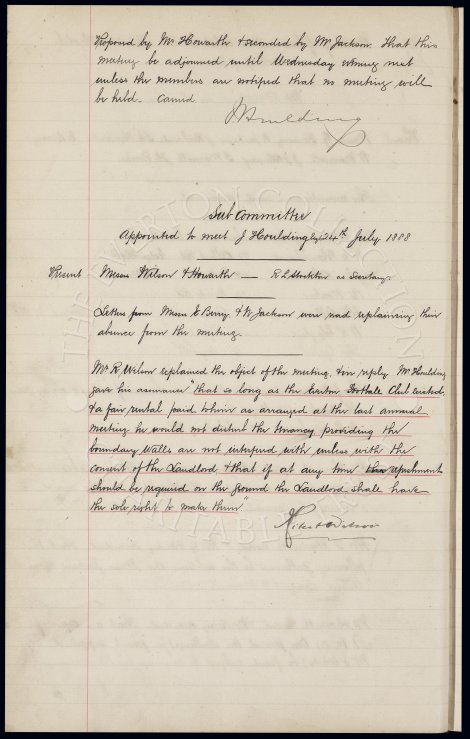 Proposed by Mr Howarth & seconded by Mr Jackson. That this
meeting be adjourned until Wednesday evening next
unless the members are notified that no meeting will
be held. Carried
J Houlding
Sub Committee
Appointed to meet J Houlding Esq 24th July 1888
Present Messrs Wilson & Howarth — R L Stockton as Secretary.
Letters from Messrs E Berry & W Jackson were read explaining their
absence from the meeting.
Mr R. Wilson explained the object of the meeting, & in reply Mr Houlding
gave his assurance "that so long as the Everton Football Club existed,
& a fair rental paid to him as arranged at the last annual
meeting he would not disturb the tenancy, providing the
boundary Walls are not interfered with unless with the
consent of the Landlord & that if at any time refreshments
should be required on the ground the Landlord shall have
the sole right to make them".
Wilson
THE EVERTON COLLECTION
CHARITABLE TRUST